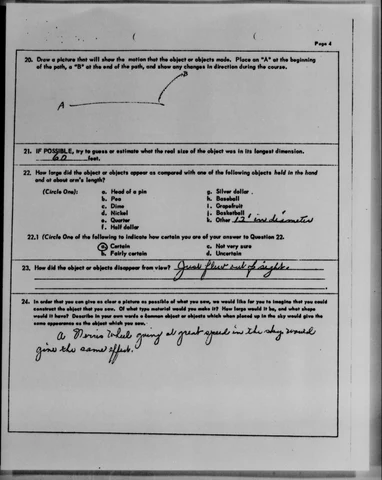 Page 4
20. Draw a picture that will show the motion that the object or objects made. Place an "A" at the beginning
of the path, a "B" at the end of the path, and show any changes in direction during the course.
B
A
21. IF POSSIBLE, try to guess or estimate what the real size of the object was in its longest dimension.
60 feet.
22. How large did the object or objects appear as compared with one of the following objects held in the hand
and at about arm's length?
(Circle One):
a. Head of a pin
b. Pea
c. Dime
d. Nickel
e. Quarter
f. Half dollar
g. Silver dollar
h. Baseball
i. Grapefruit
j. Basketball
k. Other 12' in diameter
22.1 (Circle One of the following to indicate how certain you are of your answer to Question 22.
a. Certain
b. Fairly certain
c. Not very sure
d. Uncertain
23. How did the object or objects disappear from view? Just flew out of sight.
24. In order that you can give as clear a picture as possible of what you saw, we would like for you to imagine that you could
construct the object that you saw. Of what type material would you make it? How large would it be, and what shape
would it have? Describe in your own words a common object or objects which when placed up in the sky would give the
same appearance as the object which you saw.
A Ferris Wheel going at great speed in the sky would
give the same effect.